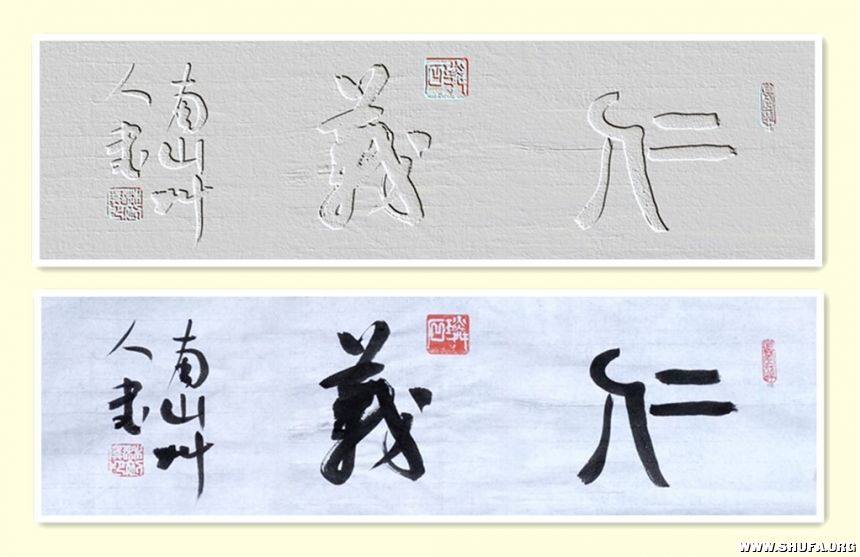 仁義
南山艸
人書
仁義
南山艸
人書
WWW.SHUFA.ORG